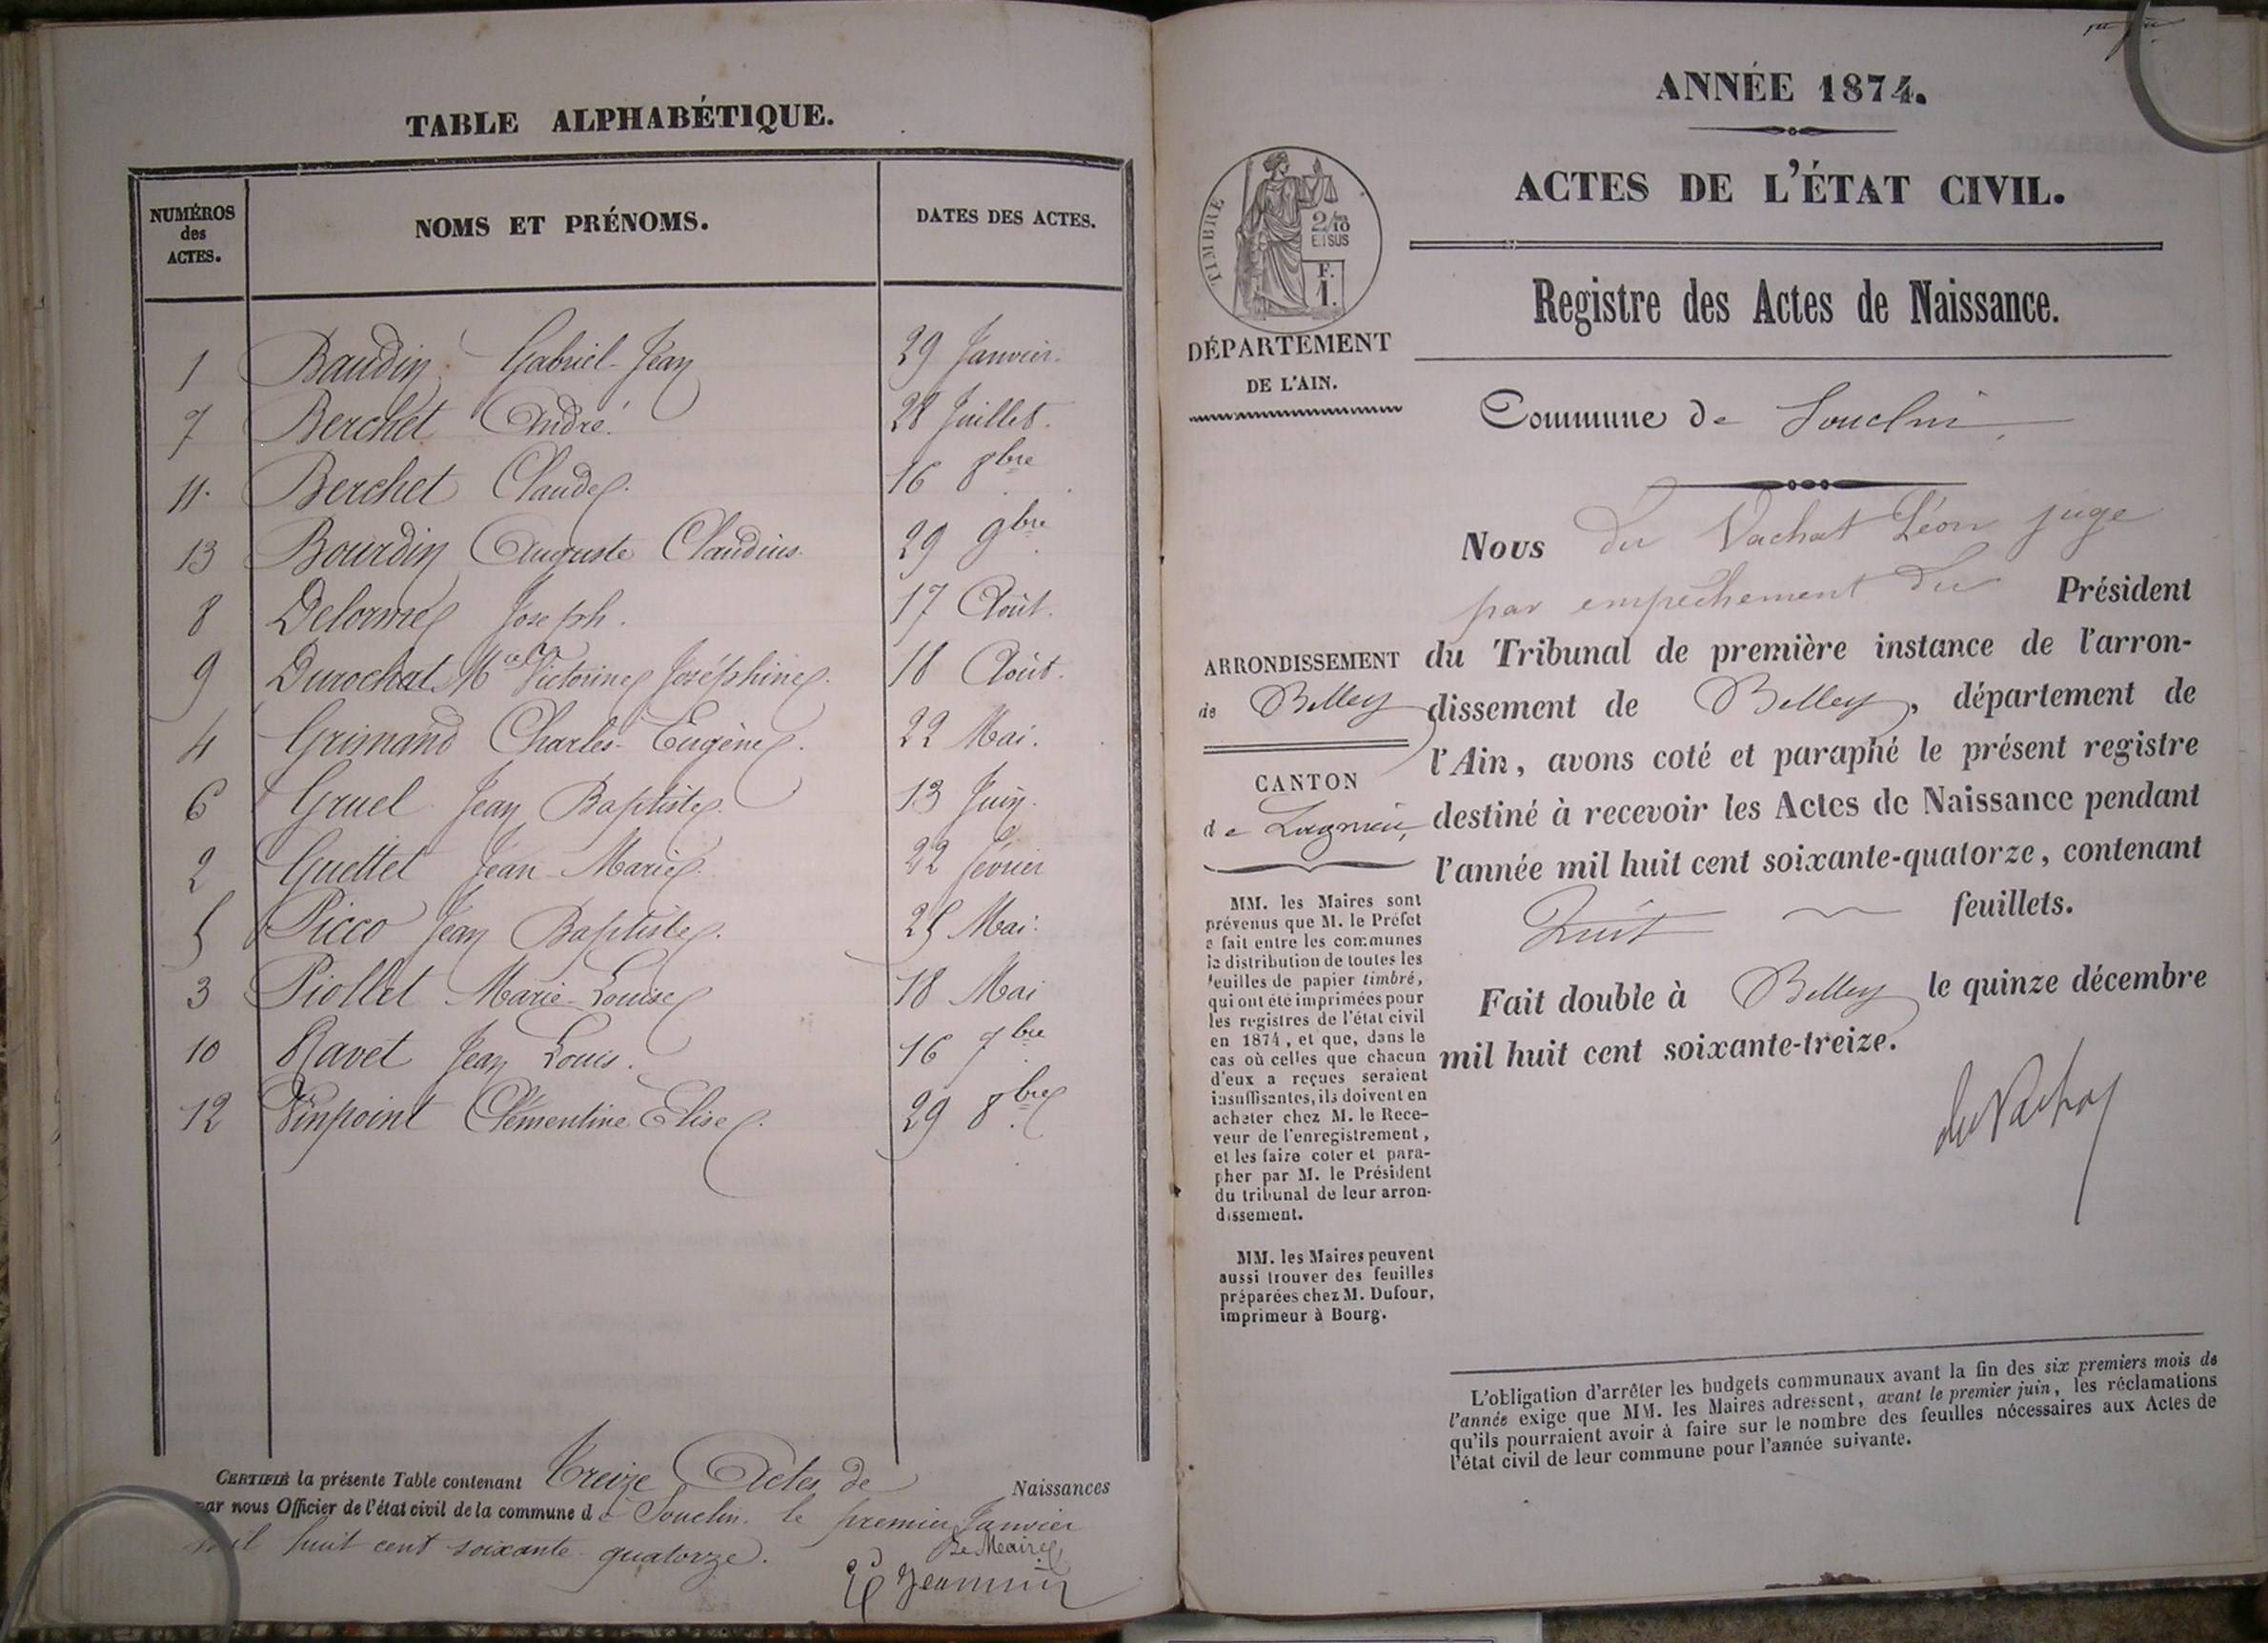 TABLE ALPHABÉTIQUE.
NUMÉROS des ACTES. NOMS ET PRÉNOMS. DATES DES ACTES.
1 Baudin Gabriel-Jean 29 Janvier.
7 Berchet André. 28 Juillet.
11. Berchet Claude. 16 8bre
13 Bourdin Auguste Claudius. 29 9bre
8 Delorme Joseph. 17 Août.
9 Durochat Victorine Joséphine. 18 Août.
4 Grimand Charles-Eugène. 22 Mai.
6 Gruel Jean Baptiste. 13 Juin.
2 Guettet Jean-Marie. 22 février
5 Picco Jean Baptiste. 25 Mai.
3 Piollet Marie-Louise 18 Mai
10 Ravet Jean Louis. 16 7bre
12 Vinpoint Clémentine Elise. 29 8bre
CERTIFIÉ la présente Table contenant Treize Actes de Naissances
par nous Officier de l'état civil de la commune de Souclin. le premier Janvier
mil huit cent soixante quatorze.
Le Maire
Jeannin
ANNÉE 1874.
ACTES DE L'ÉTAT CIVIL.
Registre des Actes de Naissance.
TIMBRE
2/10
EN SUS
F.
1.
DÉPARTEMENT
DE L'AIN.
Commune de Souclin
Nous du Vachat Léon juge
par empêchement du Président
du Tribunal de première instance de l'arron-
dissement de Belley, département de
l'Ain, avons coté et paraphé le présent registre
destiné à recevoir les Actes de Naissance pendant
l'année mil huit cent soixante-quatorze, contenant
huit feuillets.
Fait double à Belley le quinze décembre
mil huit cent soixante-treize.
du Vachat
ARRONDISSEMENT
de Belley
CANTON
de Lagnieu
MM. les Maires sont
prévenus que M. le Préfet
a fait entre les communes
la distribution de toutes les
feuilles de papier timbré,
qui ont été imprimées pour
les registres de l'état civil
en 1874, et que, dans le
cas où celles que chacun
d'eux a reçues seraient
insuffisantes, ils doivent en
acheter chez M. le Rece-
veur de l'enregistrement,
et les faire coter et para-
pher par M. le Président
du tribunal de leur arron-
dissement.
MM. les Maires peuvent
aussi trouver des feuilles
préparées chez M. Dufour,
imprimeur à Bourg.
L'obligation d'arrêter les budgets communaux avant la fin des six premiers mois de
l'année exige que MM. les Maires adressent, avant le premier juin, les réclamations
qu'ils pourraient avoir à faire sur le nombre des feuilles nécessaires aux Actes de
l'état civil de leur commune pour l'année suivante.